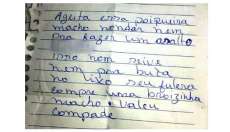 Ageita essa poipueira
macho nondar nem
pra fazer um asalto
isso nem sirve
nem pra puta
no lixo seu fulera
compre uma bobizinha
macho. valeu
compade